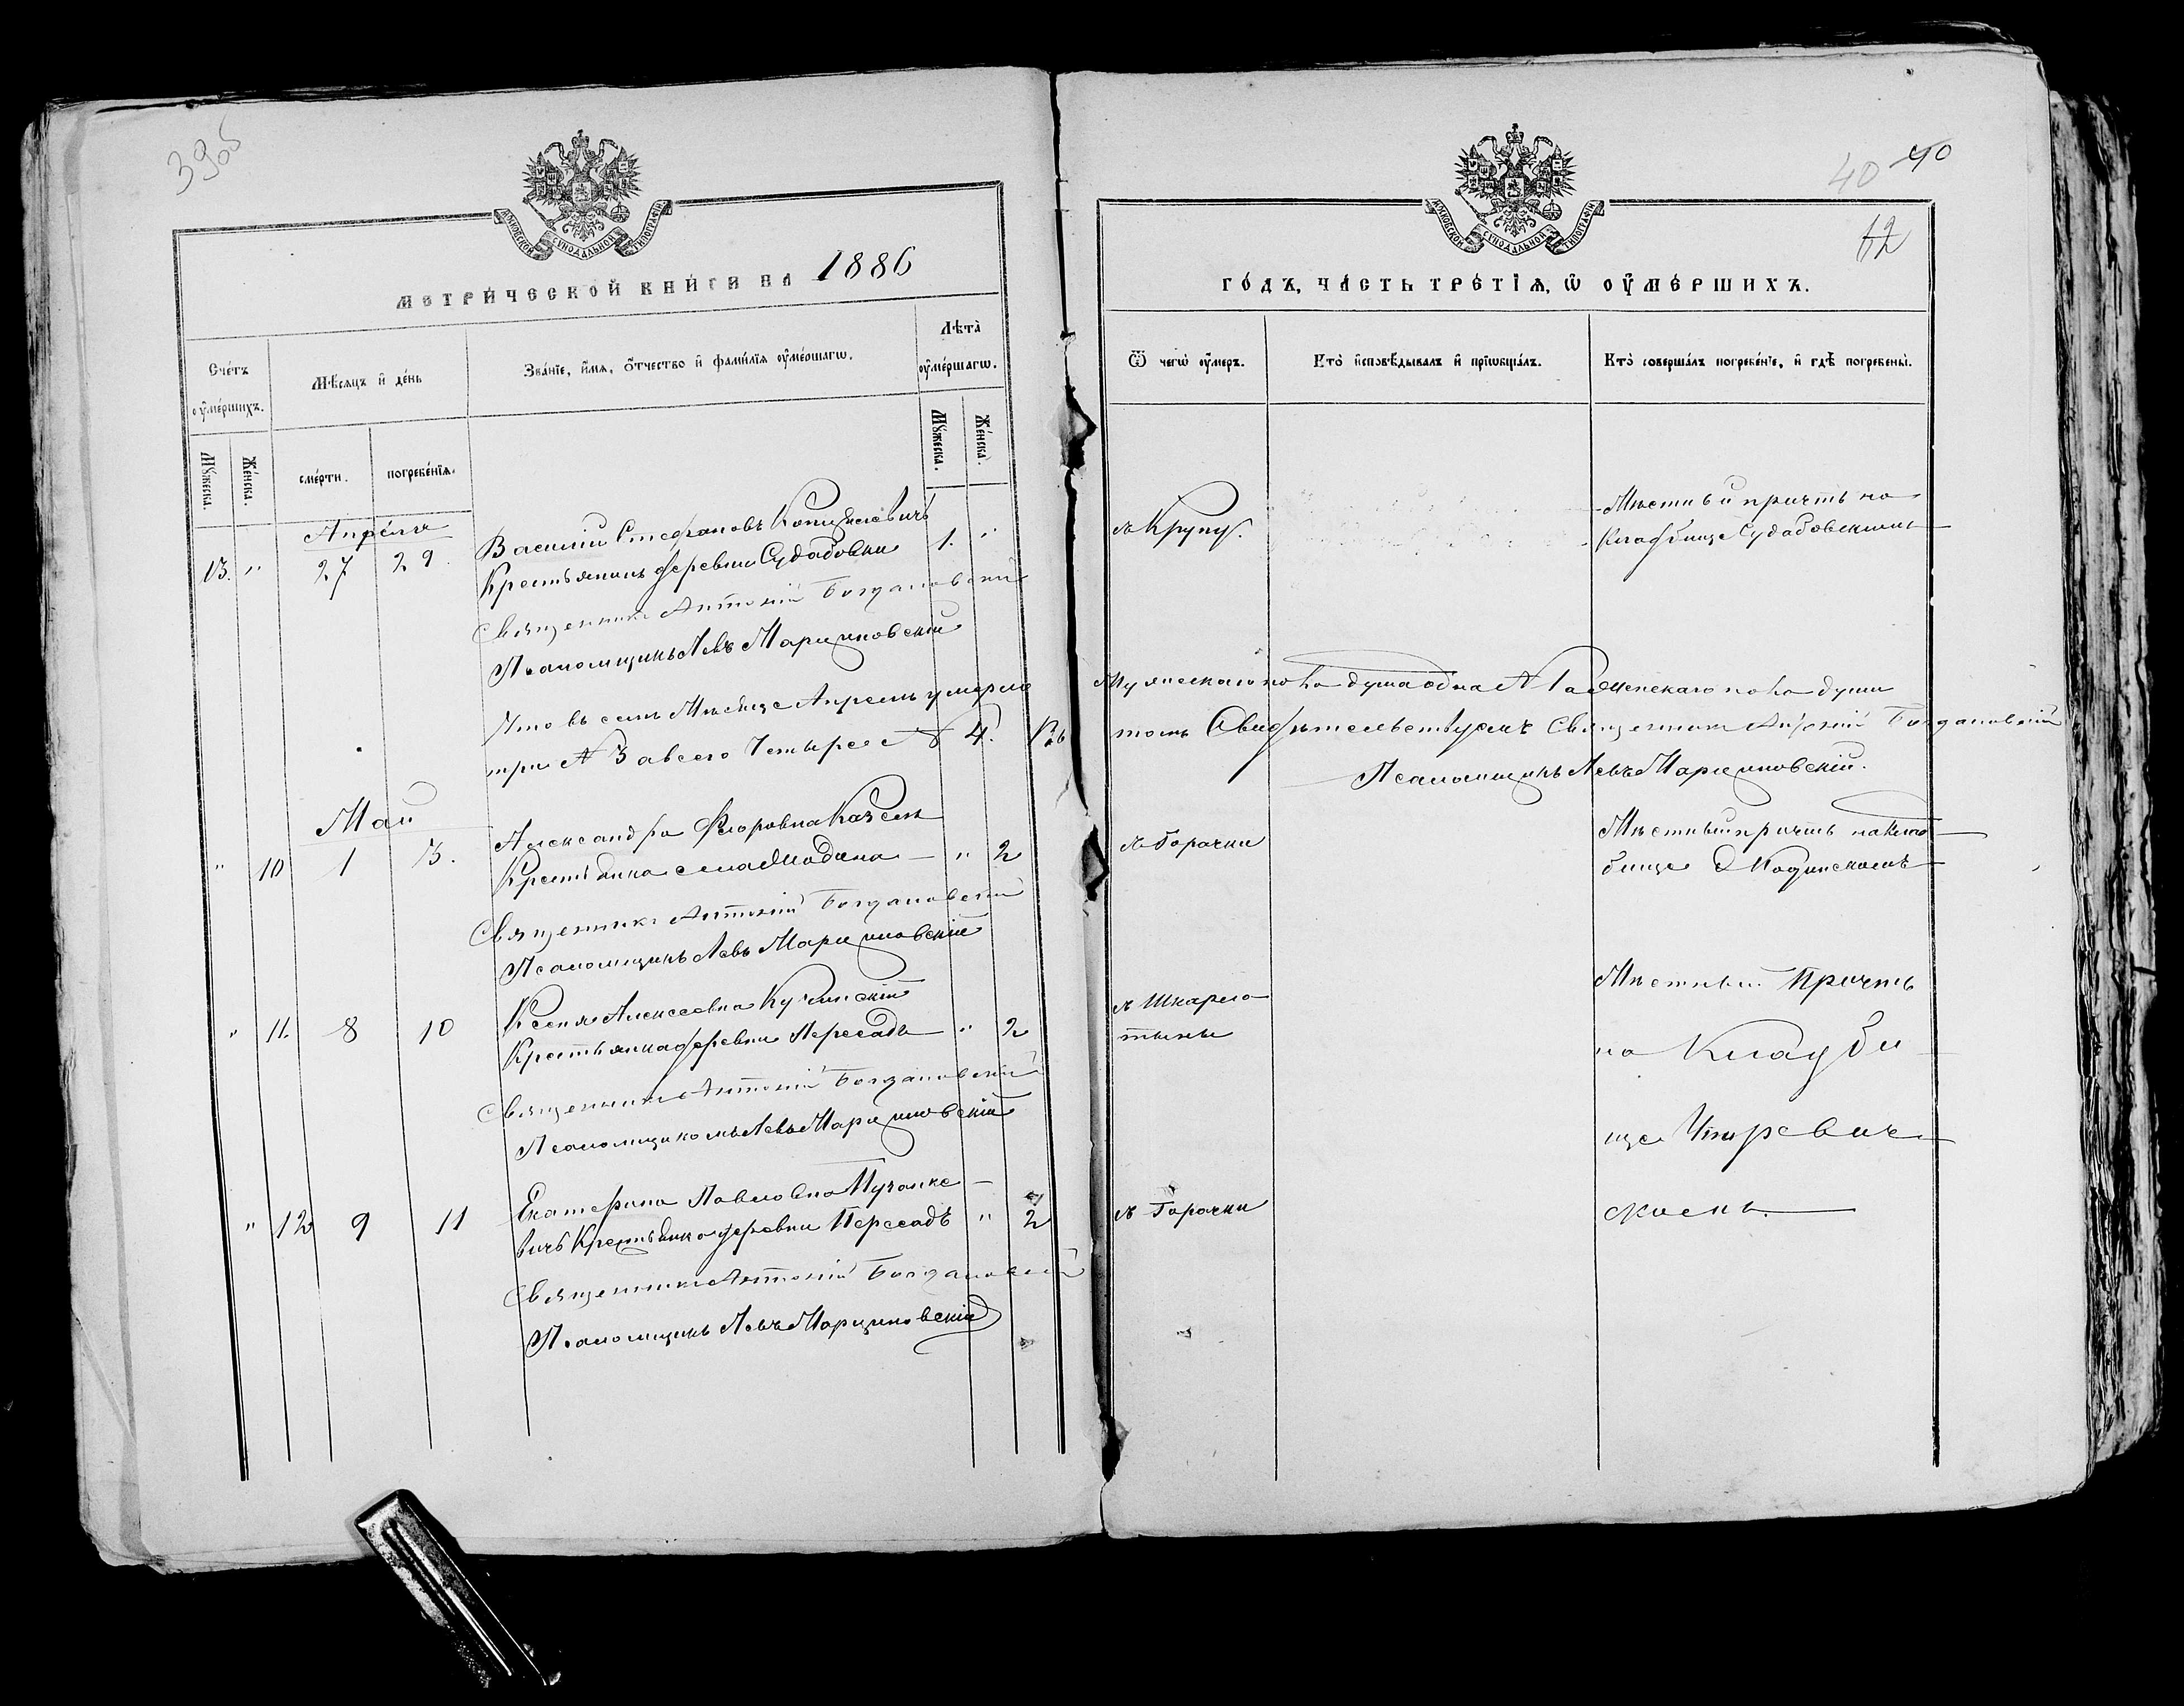 МОСКОВСКОЙ СѴНОДАЛЬНОЙ ТИПОГРАФІИ
МЕТРИ́ЧЕСКОЙ КНИ́ГИ НА 1886
Счетъ оу҆ме́ршихъ.
Мѣ́сяцъ и҆ де́нь
Зва́нїе, и҆́мѧ, ѻ҆́тчество и҆ фами́лїѧ оу҆ме́ршагѡ.
Лѣ́та оу҆ме́ршагѡ.
Мꙋ́жеска.
Же́нска.
сме́рти.
погребе́нїѧ.
Мꙋ́жеска.
Же́нска.
Апрѣль
13. " 27 29.
Василій Стефановъ
Крестьянинъ деревни Судабовки 1. "
Священникъ Антоній Богдановскій
Псаломщикъ Левъ Марциновскій
Что въ семъ Мѣсяце Апрелѣ умерло
три № 3 а всего Четыре № 4. Въ
Май
" 10 1 3.
Александра Федоровна
Крестьянка села " 2
Священникъ Антоній Богдановскій
Псаломщикъ Левъ Марциновскій
" 11. 8 10
Ксенія Алексеевна Кучинскій
Крестьянка деревни Пересадъ " 2
Священникъ Антоній Богдановскій
Псаломщикомъ Левъ Марциновскій
" 12 9 11
Екатерина Павловна Пучонке
вичъ Крестьянка деревни Пересадъ " 2
Священникъ Антоній Богдановскій
Псаломщикъ Левъ Марциновскій
40 40
12
МОСКОВСКОЙ СѴНОДАЛЬНОЙ ТИПОГРАФІИ
ГО́ДЪ, ЧА́СТЬ ТРЕ́ТІѦ, Ѡ҆ ОУ҆МЕ́РШИХЪ.
Ѿ чегѡ̀ оу҆́меръ.
Кто̀ и҆сповѣ́дывалъ и҆ прїѡбща́лъ.
Кто̀ соверша́лъ погребе́нїе, и҆ гдѣ̀ погребены̀.
Крупу.
Мѣстный причтъ на
Кладбище Судабовскомъ
Мужескаго пола душа одна № 1 а женскаго пола души
томъ Свидѣтельствуемъ Священникъ Антоній Богдановскій
Псаломщикъ Левъ Марциновскій.
Горачки
Мѣстный причтъ на Клад
бище
Шкарла
тыны
Мѣстный Причтъ
на Кладби
ще
скомъ.
Горачки